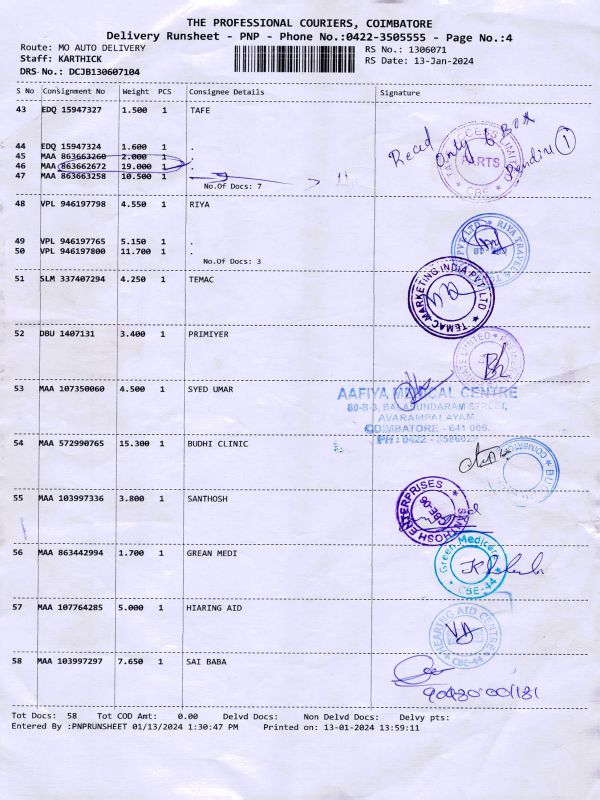 THE PROFESSIONAL COURIERS, COIMBATORE
Delivery Runsheet - PNP - Phone No.:0422-3505555 - Page No.:4
Route: MO AUTO DELIVERY
RS No.: 1306071
Staff: KARTHICK
RS Date: 13-Jan-2024
DRS No.: DCJB130607104
S No Consignment No Weight PCS Consignee Details Signature
43 EDQ 15947327 1.500 1 TAFE
Recd Only 6 Box
Pendine 1
PARTS
CBE
44 EDQ 15947324 1.600 1 .
45 MAA 863663260 2.000 1 .
46 MAA 863662672 19.000 1 .
47 MAA 863663258 10.500 1
No.Of Docs: 7
48 VPL 946197798 4.550 1 RIYA
RIYA TRAVEL
PVT LTD
49 VPL 946197765 5.150 1 .
50 VPL 946197800 11.700 1 .
No.Of Docs: 3
51 SLM 337407294 4.250 1 TEMAC
TEMAC MARKETING INDIA PVT LTD
52 DBU 1407131 3.400 1 PRIMIYER
53 MAA 107350060 4.500 1 SYED UMAR
AAFIYA MEDICAL CENTRE
80-B-3, BALASUNDARAM STREET,
AVARAMPALAYAM,
COIMBATORE - 641 006.
54 MAA 572990765 15.300 1 BUDHI CLINIC
55 MAA 103997336 3.800 1 SANTHOSH
SANTHOSH ENTERPRISES
56 MAA 863442994 1.700 1 GREAN MEDI
Green Medicer
CBE-44
57 MAA 107764285 5.000 1 HIARING AID
HEARING AID CENTRE
CBE-44
58 MAA 103997297 7.650 1 SAI BABA
Tot Docs: 58 Tot COD Amt: 0.00 Delvd Docs: Non Delvd Docs: Delvy pts:
Entered By :PNPRUNSHEET 01/13/2024 1:30:47 PM Printed on: 13-01-2024 13:59:11